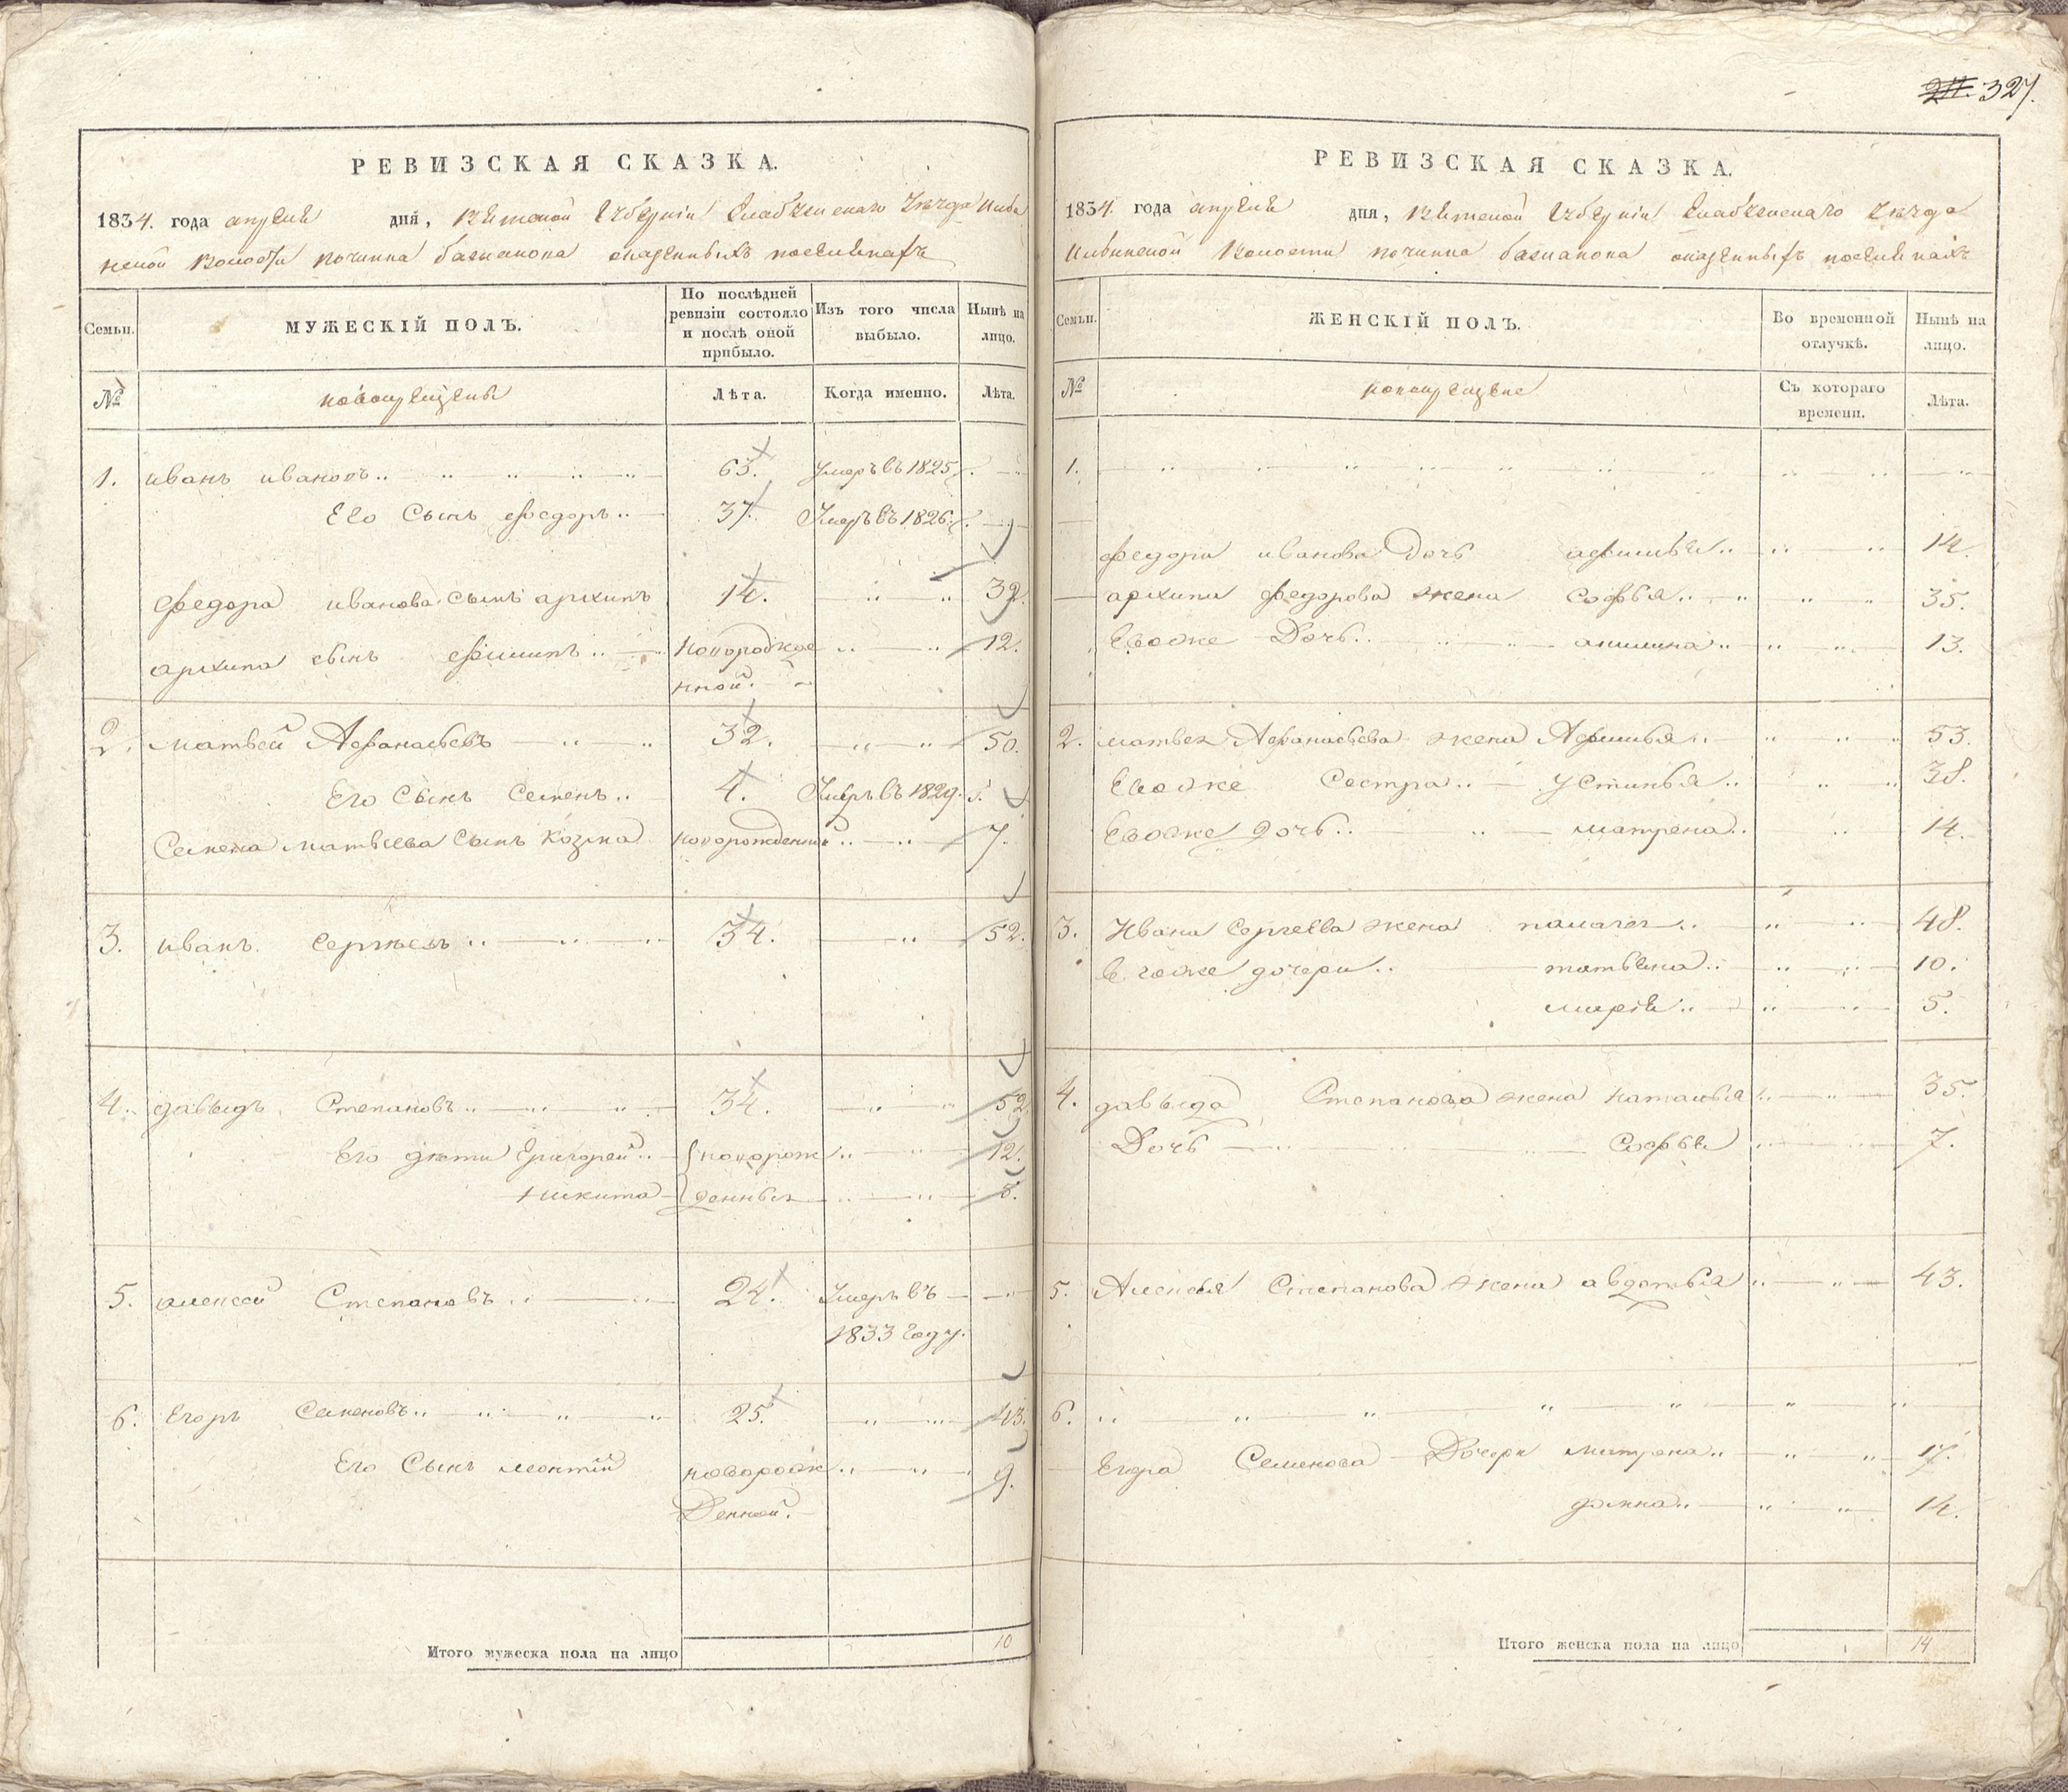 327.
РЕВИЗСКАЯ СКАЗКА.
1834. года апреля дня, Вятской Губернiи Елабужскаго Уѣзда Илвин
ской волости починка оказенныхъ поселянахъ
Семьи.
МУЖЕСКIЙ ПОЛЪ.
По послѣдней ревизiи состояло и послѣ оной прибыло.
Изъ того числа выбыло.
Нынѣ на лицо.
№
новокрещены
Лѣта.
Когда именно.
Лѣта.
1. иванъ ивановъ 63. Умеръ въ 1825
Его Сынъ Федоръ 37. Умеръ въ 1826.
Федора иванова сынъ архипъ 14. 32.
архипа сынъ Филипъ новорожде 12.
нной.
2. матвей Афанасьевъ 32. 50.
Его Сынъ Семенъ 4. Умеръ въ 1829.
Семена матвеева Сынъ Козма новорожденный 7.
3. иванъ Сергѣевъ 34. 52.
4. давыдъ Степановъ 34. 52.
Его дѣти Григорей новорож 12.
никита денныя 8.
5. алексей Степановъ 24. Умеръ въ
1833 году.
6. Егоръ Семеновъ 25. 43.
Его Сынъ леонтiй новорож 9.
Денной.
Итого мужеска пола на лицо 10
РЕВИЗСКАЯ СКАЗКА.
1834. года апреля дня, Вятской Губернiи Елабужскаго Уѣзда
Илвинской Волости починка оказенныхъ поселянахъ
Семьи.
ЖЕНСКIЙ ПОЛЪ.
Во временной отлучкѣ.
Нынѣ на лицо.
№
новокрещене
Съ котораго времени.
Лѣта.
1.
Федора иванова Дочь афимья 14.
архипа Федорова жена Софья 35.
Евоже Дочь акилина 13.
2. матвея Афанасьева жена Афимья 53.
Евоже Сестра устинья 38.
Евоже дочь матрена 14.
3. Ивана Сергеева жена палагея 48.
Евоже дочери татьяна 10.
марiя 5.
4. давыда Степанова жена наталья 35.
Дочь Софья 7.
5. Алексея Степанова жена авдотья 43.
6.
Егора Семенова Дочери матрена 17.
домна 14.
Итого женска пола на лицо 14